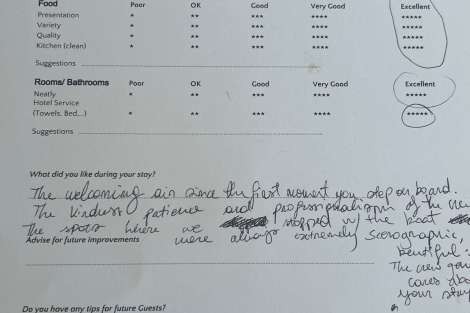 Food Poor OK Good Very Good Excellent
Presentation * ** *** **** *****
Variety * ** *** **** *****
Quality * ** *** **** *****
Kitchen (clean) * ** *** **** *****
Suggestions
Rooms/ Bathrooms Poor OK Good Very Good Excellent
Neatly * ** *** **** *****
Hotel Service
(Towels. Bed,..) * ** *** **** *****
Suggestions
What did you like during your stay?
The welcoming air since the first moment you step on board.
The kindness patience and professionalism of the
the spots where we stopped w/ the boat
were always extremely
Advise for future improvements
beutiful
The crew
cares
your stay
Do you have any tips for future Guests?